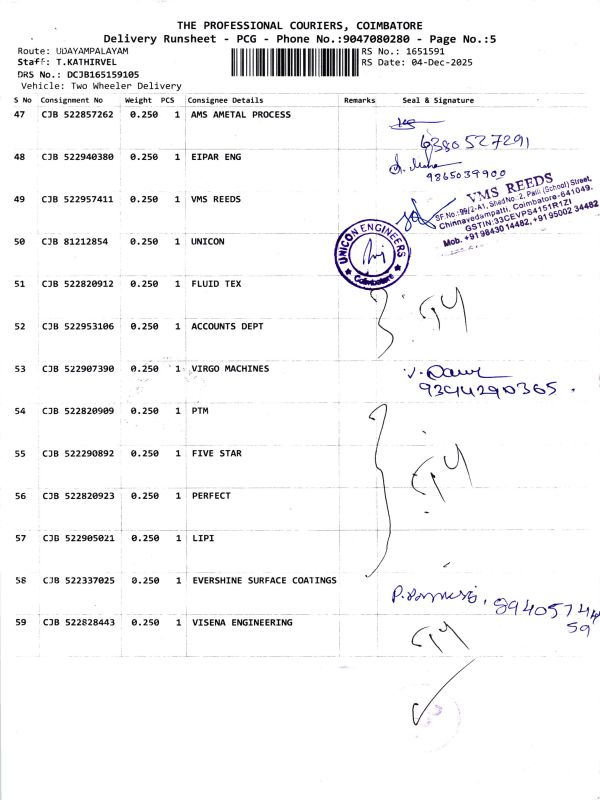 THE PROFESSIONAL COURIERS, COIMBATORE
Delivery Runsheet - PCG - Phone No.:9047080280 - Page No.:5
Route: UDAYAMPALAYAM RS No.: 1651591
Staff: T.KATHIRVEL RS Date: 04-Dec-2025
DRS No.: DCJB165159105
Vehicle: Two Wheeler Delivery
S No Consignment No Weight PCS Consignee Details Remarks Seal & Signature
47 CJB 522857262 0.250 1 AMS AMETAL PROCESS
6380527291
48 CJB 522940380 0.250 1 EIPAR ENG
9865039900
49 CJB 522957411 0.250 1 VMS REEDS
VMS REEDS
SF No.:99/2-A1, Shed No. 2, Palli (School) Street,
Chinnavedampatti, Coimbatore-641049.
GSTIN:33CEVPS4151R1ZI
Mob. +91 98430 14482, +91 95002 34482
50 CJB 81212854 0.250 1 UNICON
UNICON ENGINEERS
Coimbatore
51 CJB 522820912 0.250 1 FLUID TEX
52 CJB 522953106 0.250 1 ACCOUNTS DEPT
53 CJB 522907390 0.250 1 VIRGO MACHINES
9394290365.
54 CJB 522820909 0.250 1 PTM
55 CJB 522290892 0.250 1 FIVE STAR
56 CJB 522820923 0.250 1 PERFECT
57 CJB 522905021 0.250 1 LIPI
58 CJB 522337025 0.250 1 EVERSHINE SURFACE COATINGS
89405744
59
59 CJB 522828443 0.250 1 VISENA ENGINEERING